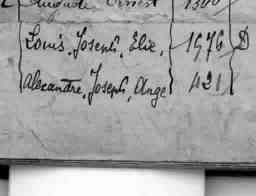 Auguste Ernest 1300
Louis, Joseph, Elie, 1976 D
Alexandre, Joseph, Ange 421